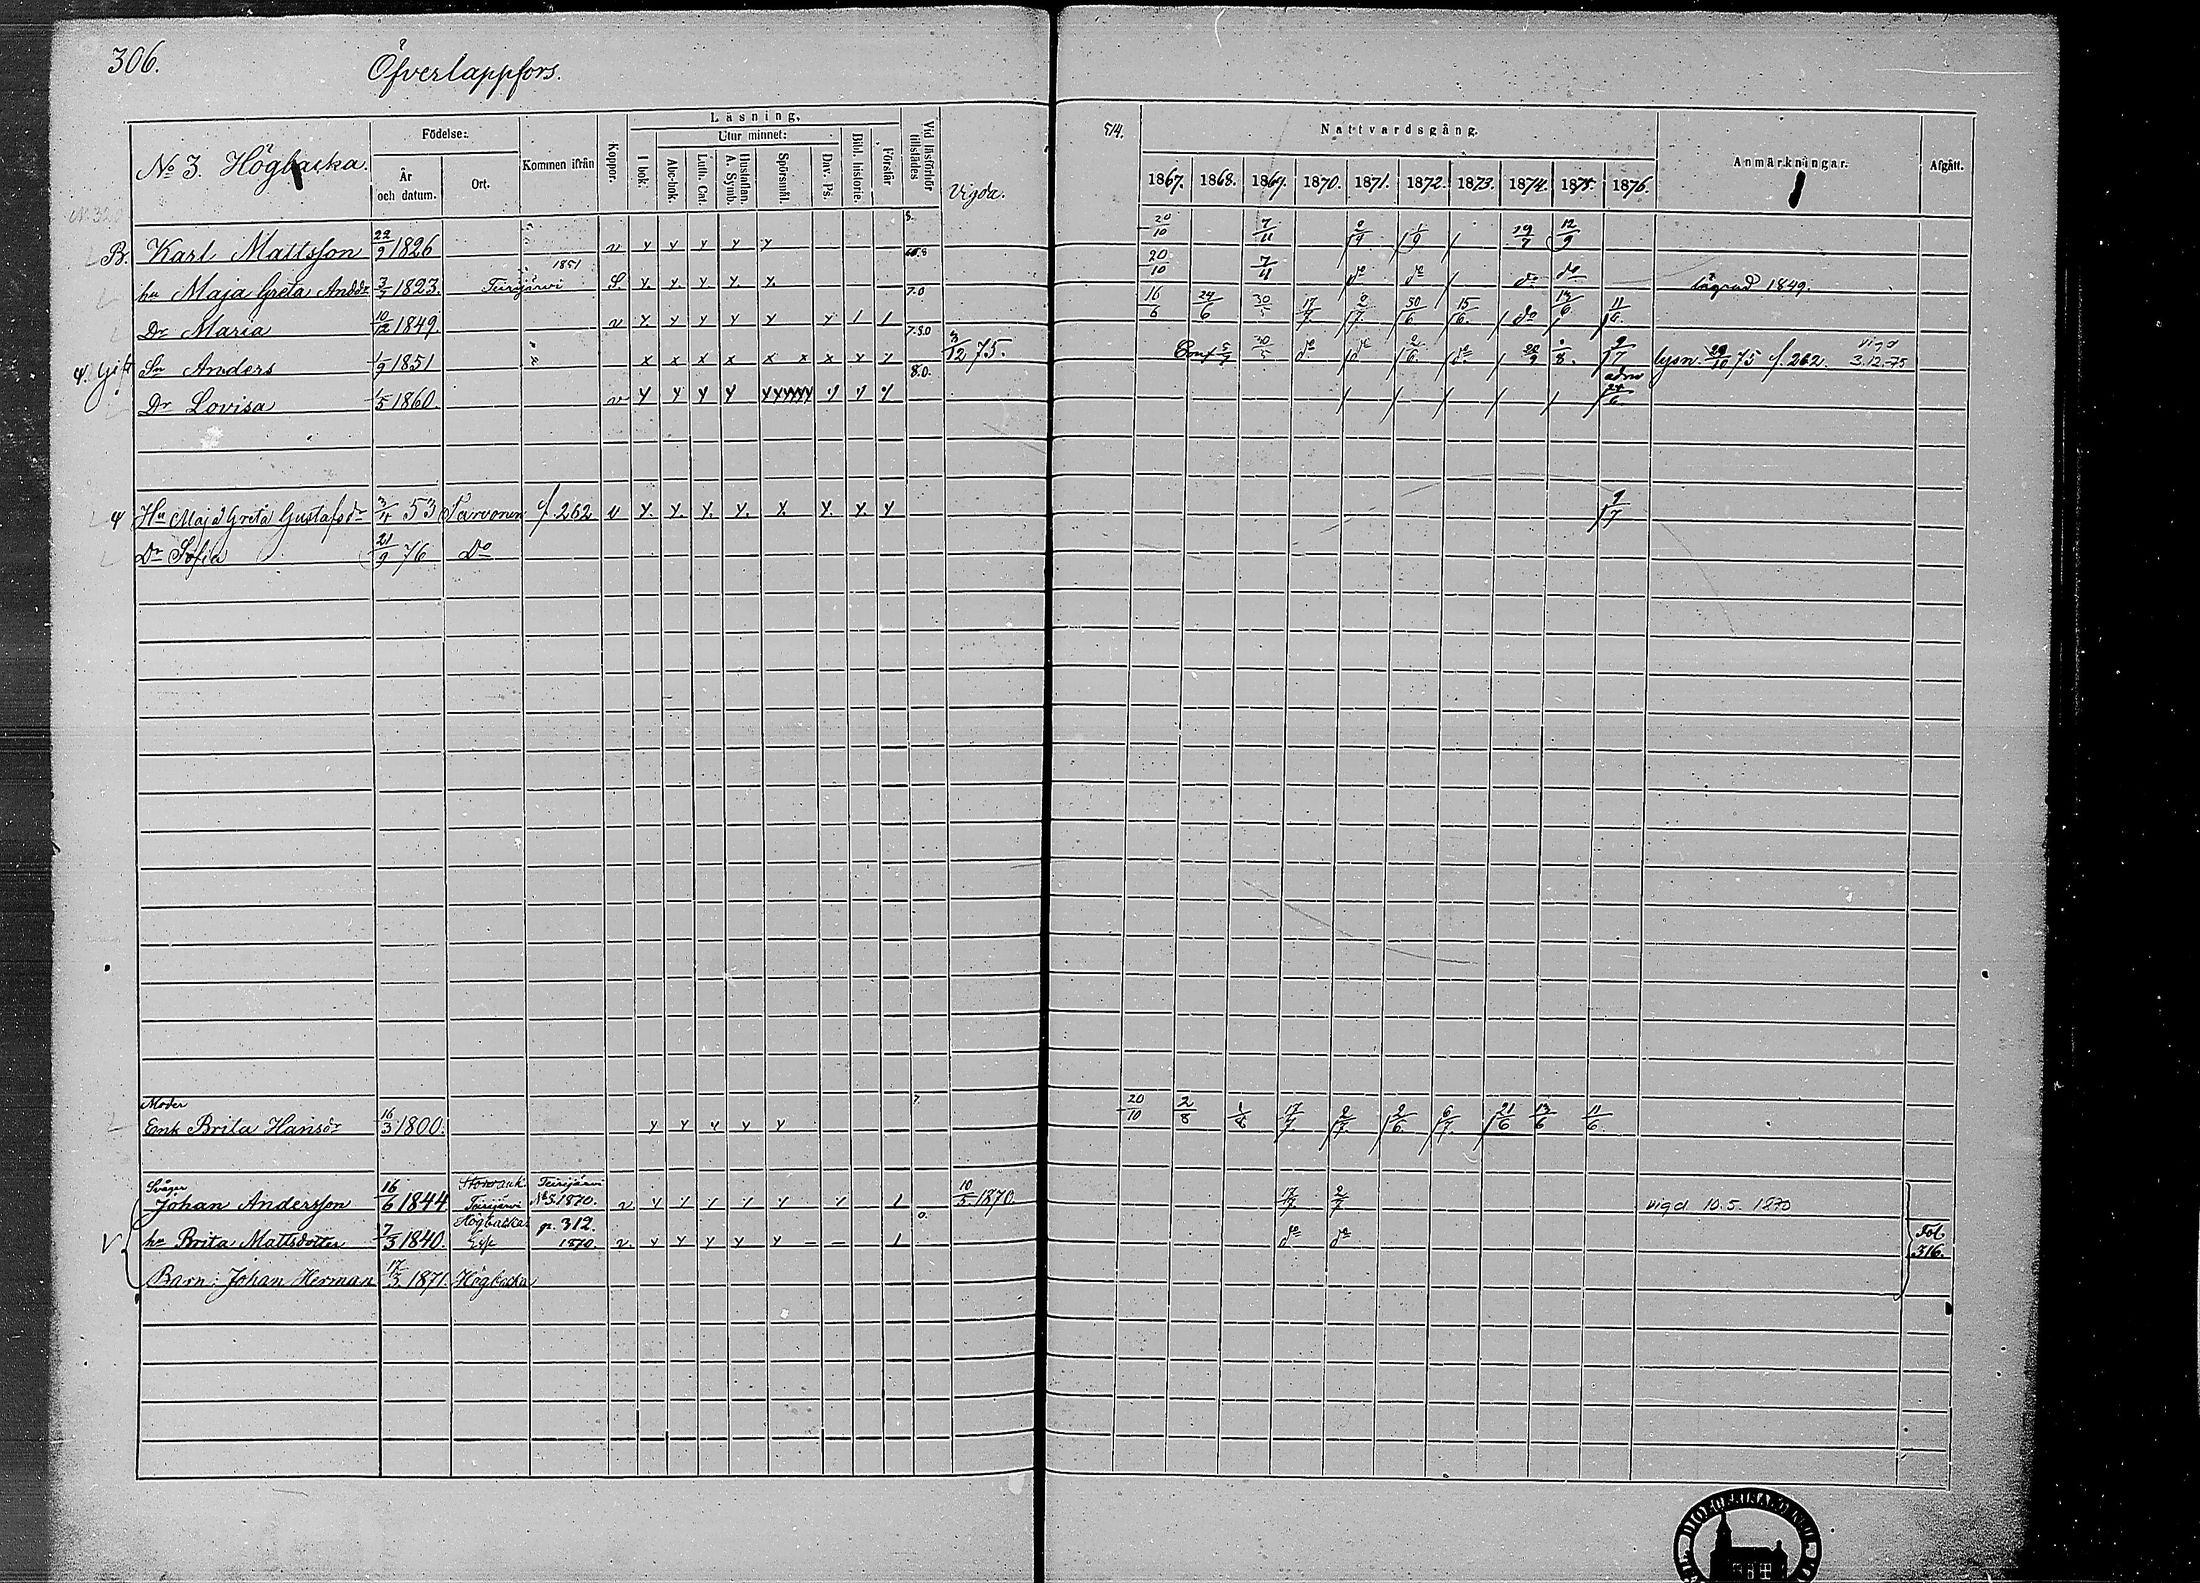 306.
Öfverlappfors.
No 3. Högbacka.
Födelse:
År och datum.
Ort.
Kommen ifrån
Koppor.
Läsning,
I bok.
Utur minnet:
Abc-bok.
Luth. Cat.
Hustaflan. A. Symb.
Spörsmål.
Dav. Ps.
Bibl. historie.
Förstår
Vid läsförhör tillstädes
Vigda.
514.
Nattvardsgång.
1867. 1868. 1869. 1870. 1871. 1872. 1873. 1874. 1875. 1876.
Anmärkningar.
Afgått.
B. Karl Mattsson 22/9 1826 v y y y y y 20/10 7/11 2/9 1/9 19/7 12/9
hu Maja Greta Andsdr 3/7 1823. Teirijärvi 1851 S. y. y. y y y. 20/10 7/11 do do do do lägrad 1849.
Dr Maria 10/12 1849. v y. y y y y y 1 1 16/6 24/6 30/5 17/7. 2/7. 30/6 15/6. do 13/6 11/6.
Gift Sn Anders 1/9 1851 x x x x x x x y y 3/12 75. Conf 5/7 30/5 do do 2/6. do 20/9 1/8. 9/7 lysn. 24/10 75 f. 262. vigd 3.12.75
Dr Lovisa 1/5 1860. v y y y y yyyyyy y y y adm 24/6.
Hu Maja Greta Gustafsdr 3/11 53 Tervonen f. 262 v y. y. y. y. y. y. y. y 9/7
Dr Sofia 21/9 76 Do
Moder
Enk Brita Hansdr 16/3 1800. y y y y y 20/10 2/8 1/8 17/7. 2/7. 2/6. 6/7. 21/6 13/6 11/6.
Svåger
Johan Andersson 16/6 1844 Teirijärvi Teirijärvi No 8. 1870. v y y y y y y 1 10/5 1870. 17/7 2/7 vigd 10.5.1870
hu Brita Mattsdotter 7/3 1840. Högbacka p. 312. 1870. v. y y y y y – – 1 do do Fol. 316.
Barn: Johan Herman 17/3 1871. Högbacka